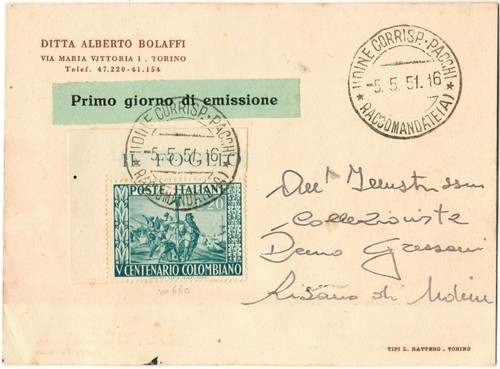 DITTA ALBERTO BOLAFFI
VIA MARIA VITTORIA 1 . TORINO
Telef. 47.220-41.154
Primo giorno di emissione
UDINE CORRISP.-PACCHI
-5.5.51.16
RACCOMANDATE(A)
UDINE CORRISP.-PACCHI
-5.5.51.16
RACCOMANDATE(A)
IL FOGLIO
POSTE ITALIANE
20
V CENTENARIO COLOMBIANO
Collezionista
di Udine
TIPI L. RATTERO . TORINO